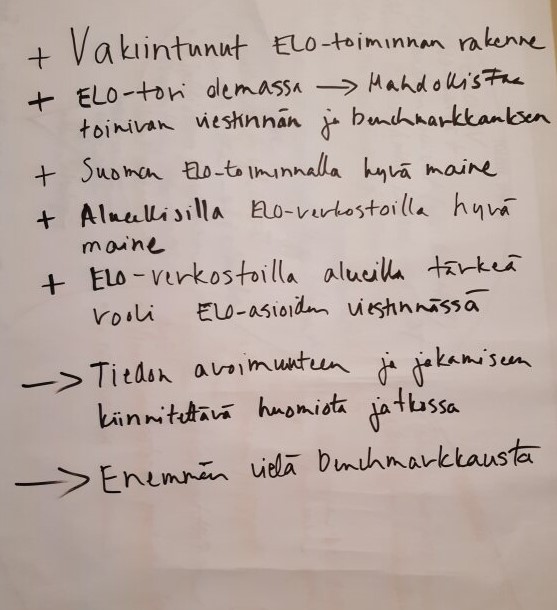 + Vakiintunut ELO-toiminnan rakenne
+ ELO-tori olemassa → Mahdollistaa
toimivan viestinnän ja benchmarkkauksen
+ Suomen ELO-toiminnalla hyvä maine
+ Alueellisilla ELO-verkostoilla hyvä
maine
+ ELO-verkostoilla alueilla tärkeä
rooli ELO-asioiden viestinnässä
→ Tiedon avoimuuteen ja jakamiseen
kiinnitettävä huomiota jatkossa
→ Enemmän vielä benchmarkkausta